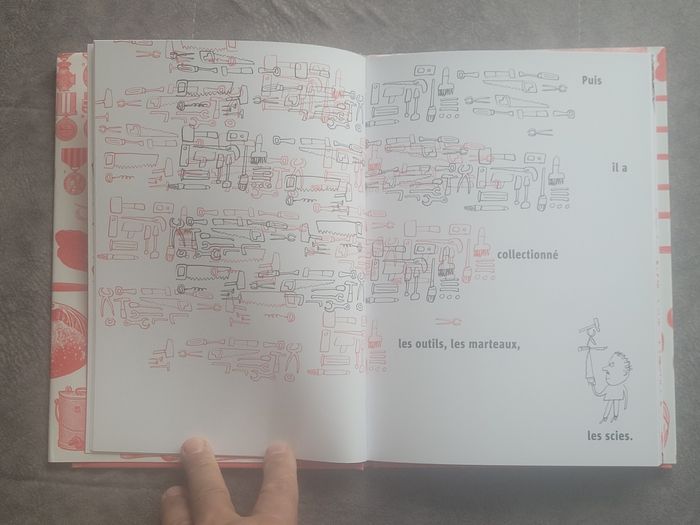 Puis
il a
collectionné
les outils, les marteaux,
les scies.